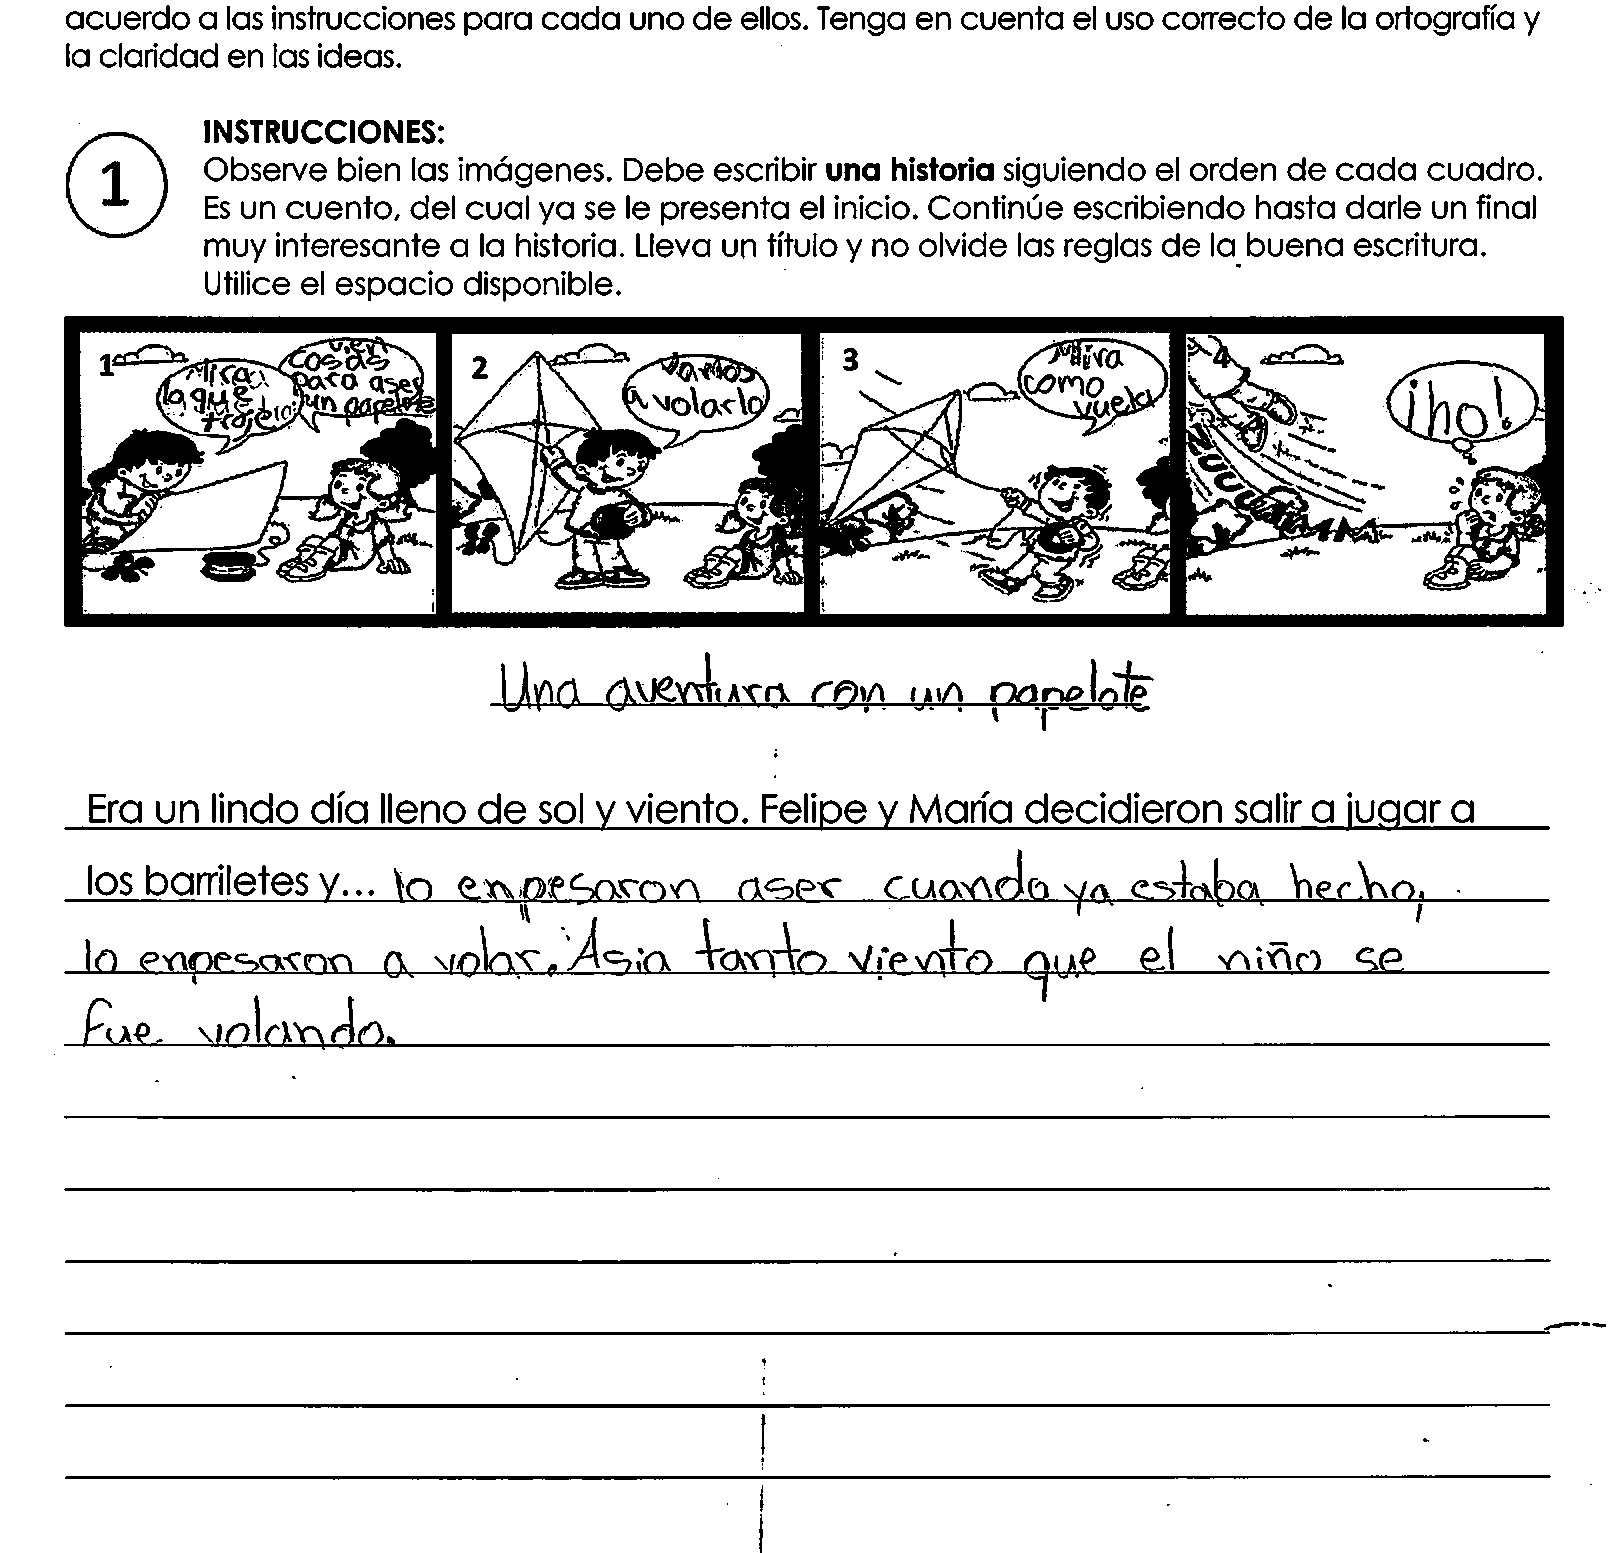 acuerdo a las instrucciones para cada uno de ellos. Tenga en cuenta el uso correcto de la ortografía y
la claridad en las ideas.
1
INSTRUCCIONES:
Observe bien las imágenes. Debe escribir una historia siguiendo el orden de cada cuadro.
Es un cuento, del cual ya se le presenta el inicio. Continúe escribiendo hasta darle un final
muy interesante a la historia. Lleva un título y no olvide las reglas de la buena escritura.
Utilice el espacio disponible.
1
Mira
lo que
traje
cosas
para aser
un papelote
2
Vamos
a volarlo
3
Mira
como
vuela
4
¡ho!
Una aventura con un papelote
Era un lindo día lleno de sol y viento. Felipe y María decidieron salir a jugar a
los barriletes y... lo enpesaron aser cuando ya estaba hecho,
lo enpesaron a volar. Asia tanto viento que el niño se
fue volando.